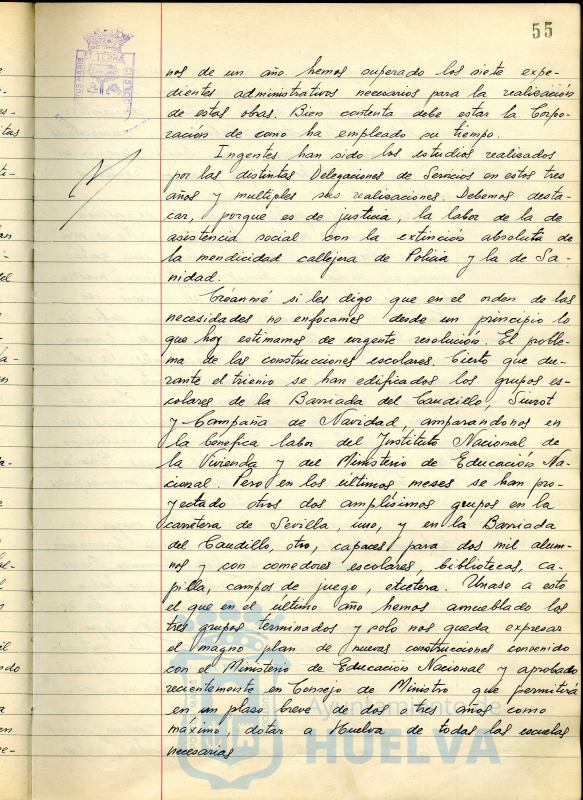 55
nos de un año hemos superado los siete expe-
dientes administrativos necesarios para la realización
de estas obras. Bien contenta debe estar la Corpo-
racion de como ha empleado su tiempo.
Ingentes han sido los estudios realisados
por las distintas Delegaciones de Servicios en estos tres
años y multiples sus realisaciones. Debemos desta-
car, porque es de justicia, la labor de la de
asistencia social con la extinción absoluta de
la mendicidad callejera de Policia y la de Sa-
nidad.
Créanme si les digo que en el orden de las
necesidades no enfocamos desde un principio lo
que hoy estimamos de urgente resolución. El proble-
ma de las construcciones escolares. Cierto que du-
rante el trienio se han edificados los grupos es-
colares de la Barriada del Caudillo, Siurot
y Campaña de Navidad, amparandonos en
la benefica labor del Instituto Nacional de
la Vivienda y del Ministerio de Educación Na-
cional. Pero en los últimos meses se han pro-
yectado otros dos amplisimos grupos en la
carretera de Sevilla, uno, y en la Barriada
del Caudillo, otro, capaces para dos mil alum-
nos y con comedores escolares, bibliotecas, ca-
pilla, campos de juego, etcetera. Unase a esto
el que en el último año hemos amueblado los
tres grupos terminados y solo nos queda expresar
el magno plan de nuevas construcciones convenido
con el Ministerio de Educación Nacional y aprobado
recientemente en Consejo de Ministro que permitirá
en un plaso breve de dos o tres años como
máximo, dotar a Huelva de todas las escuelas
necesarias
Ayuntamiento de
HUELVA